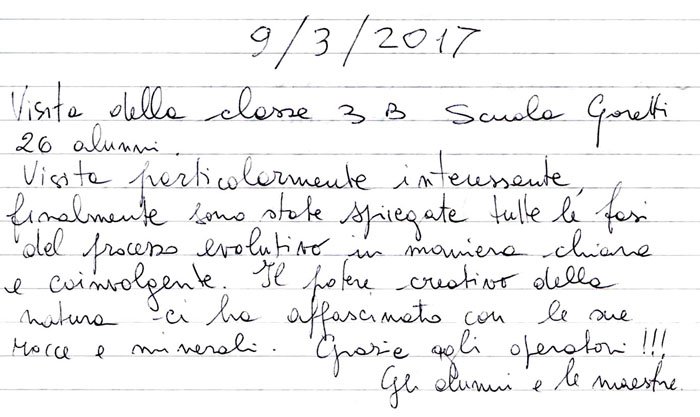 9/3/2017
Visita della classe 3 B Scuola Goretti
26 alunni.
Visita particolarmente interessante,
finalmente sono state spiegate tutte le fasi
del processo evolutivo in maniera chiara
e coinvolgente. Il potere creativo della
natura ci ha affascinato con le sue
rocce e minerali. Grazie agli operatori!!!
Gli alunni e le maestre.